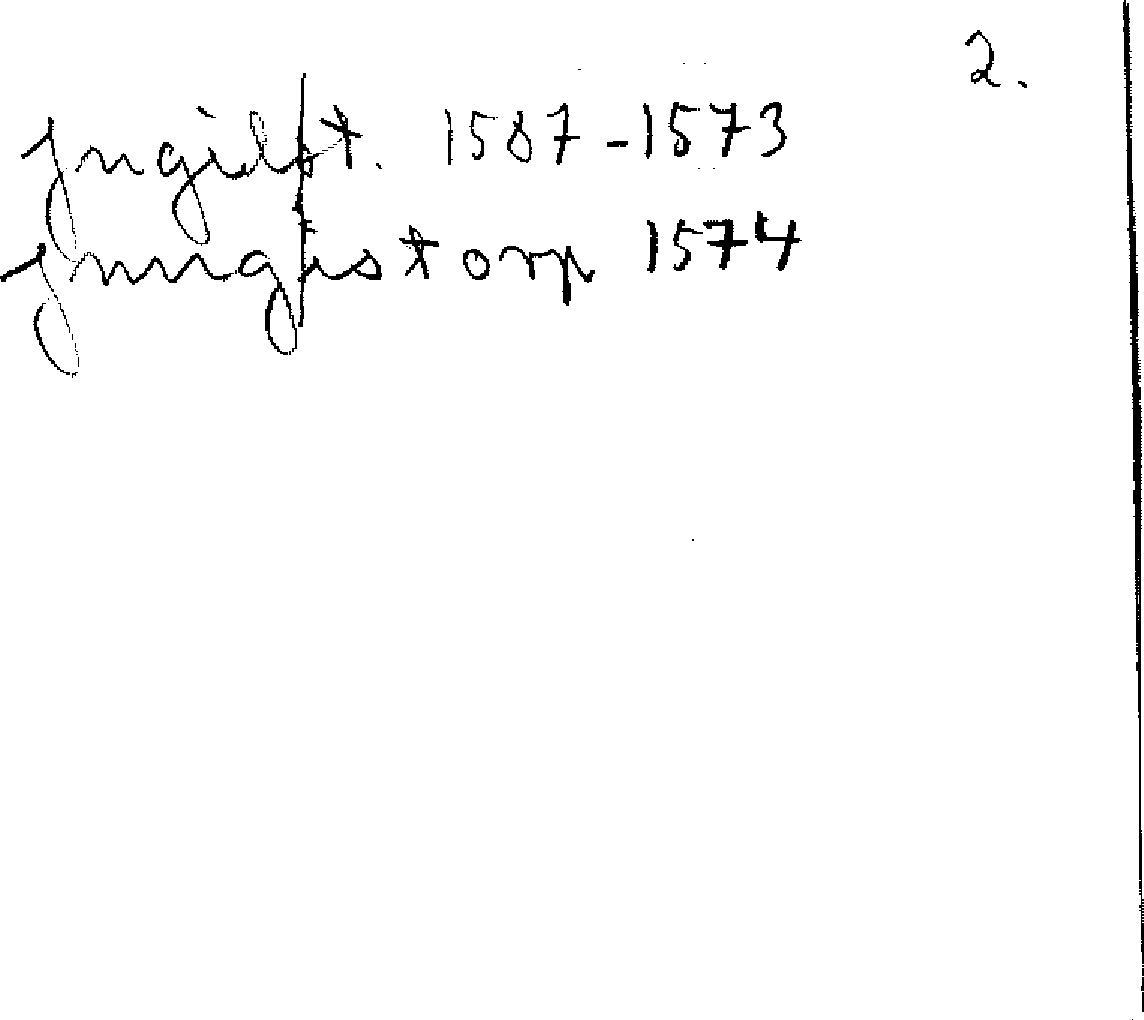 2.
Jngilst. 1587-1573
Jnngistorp 1574